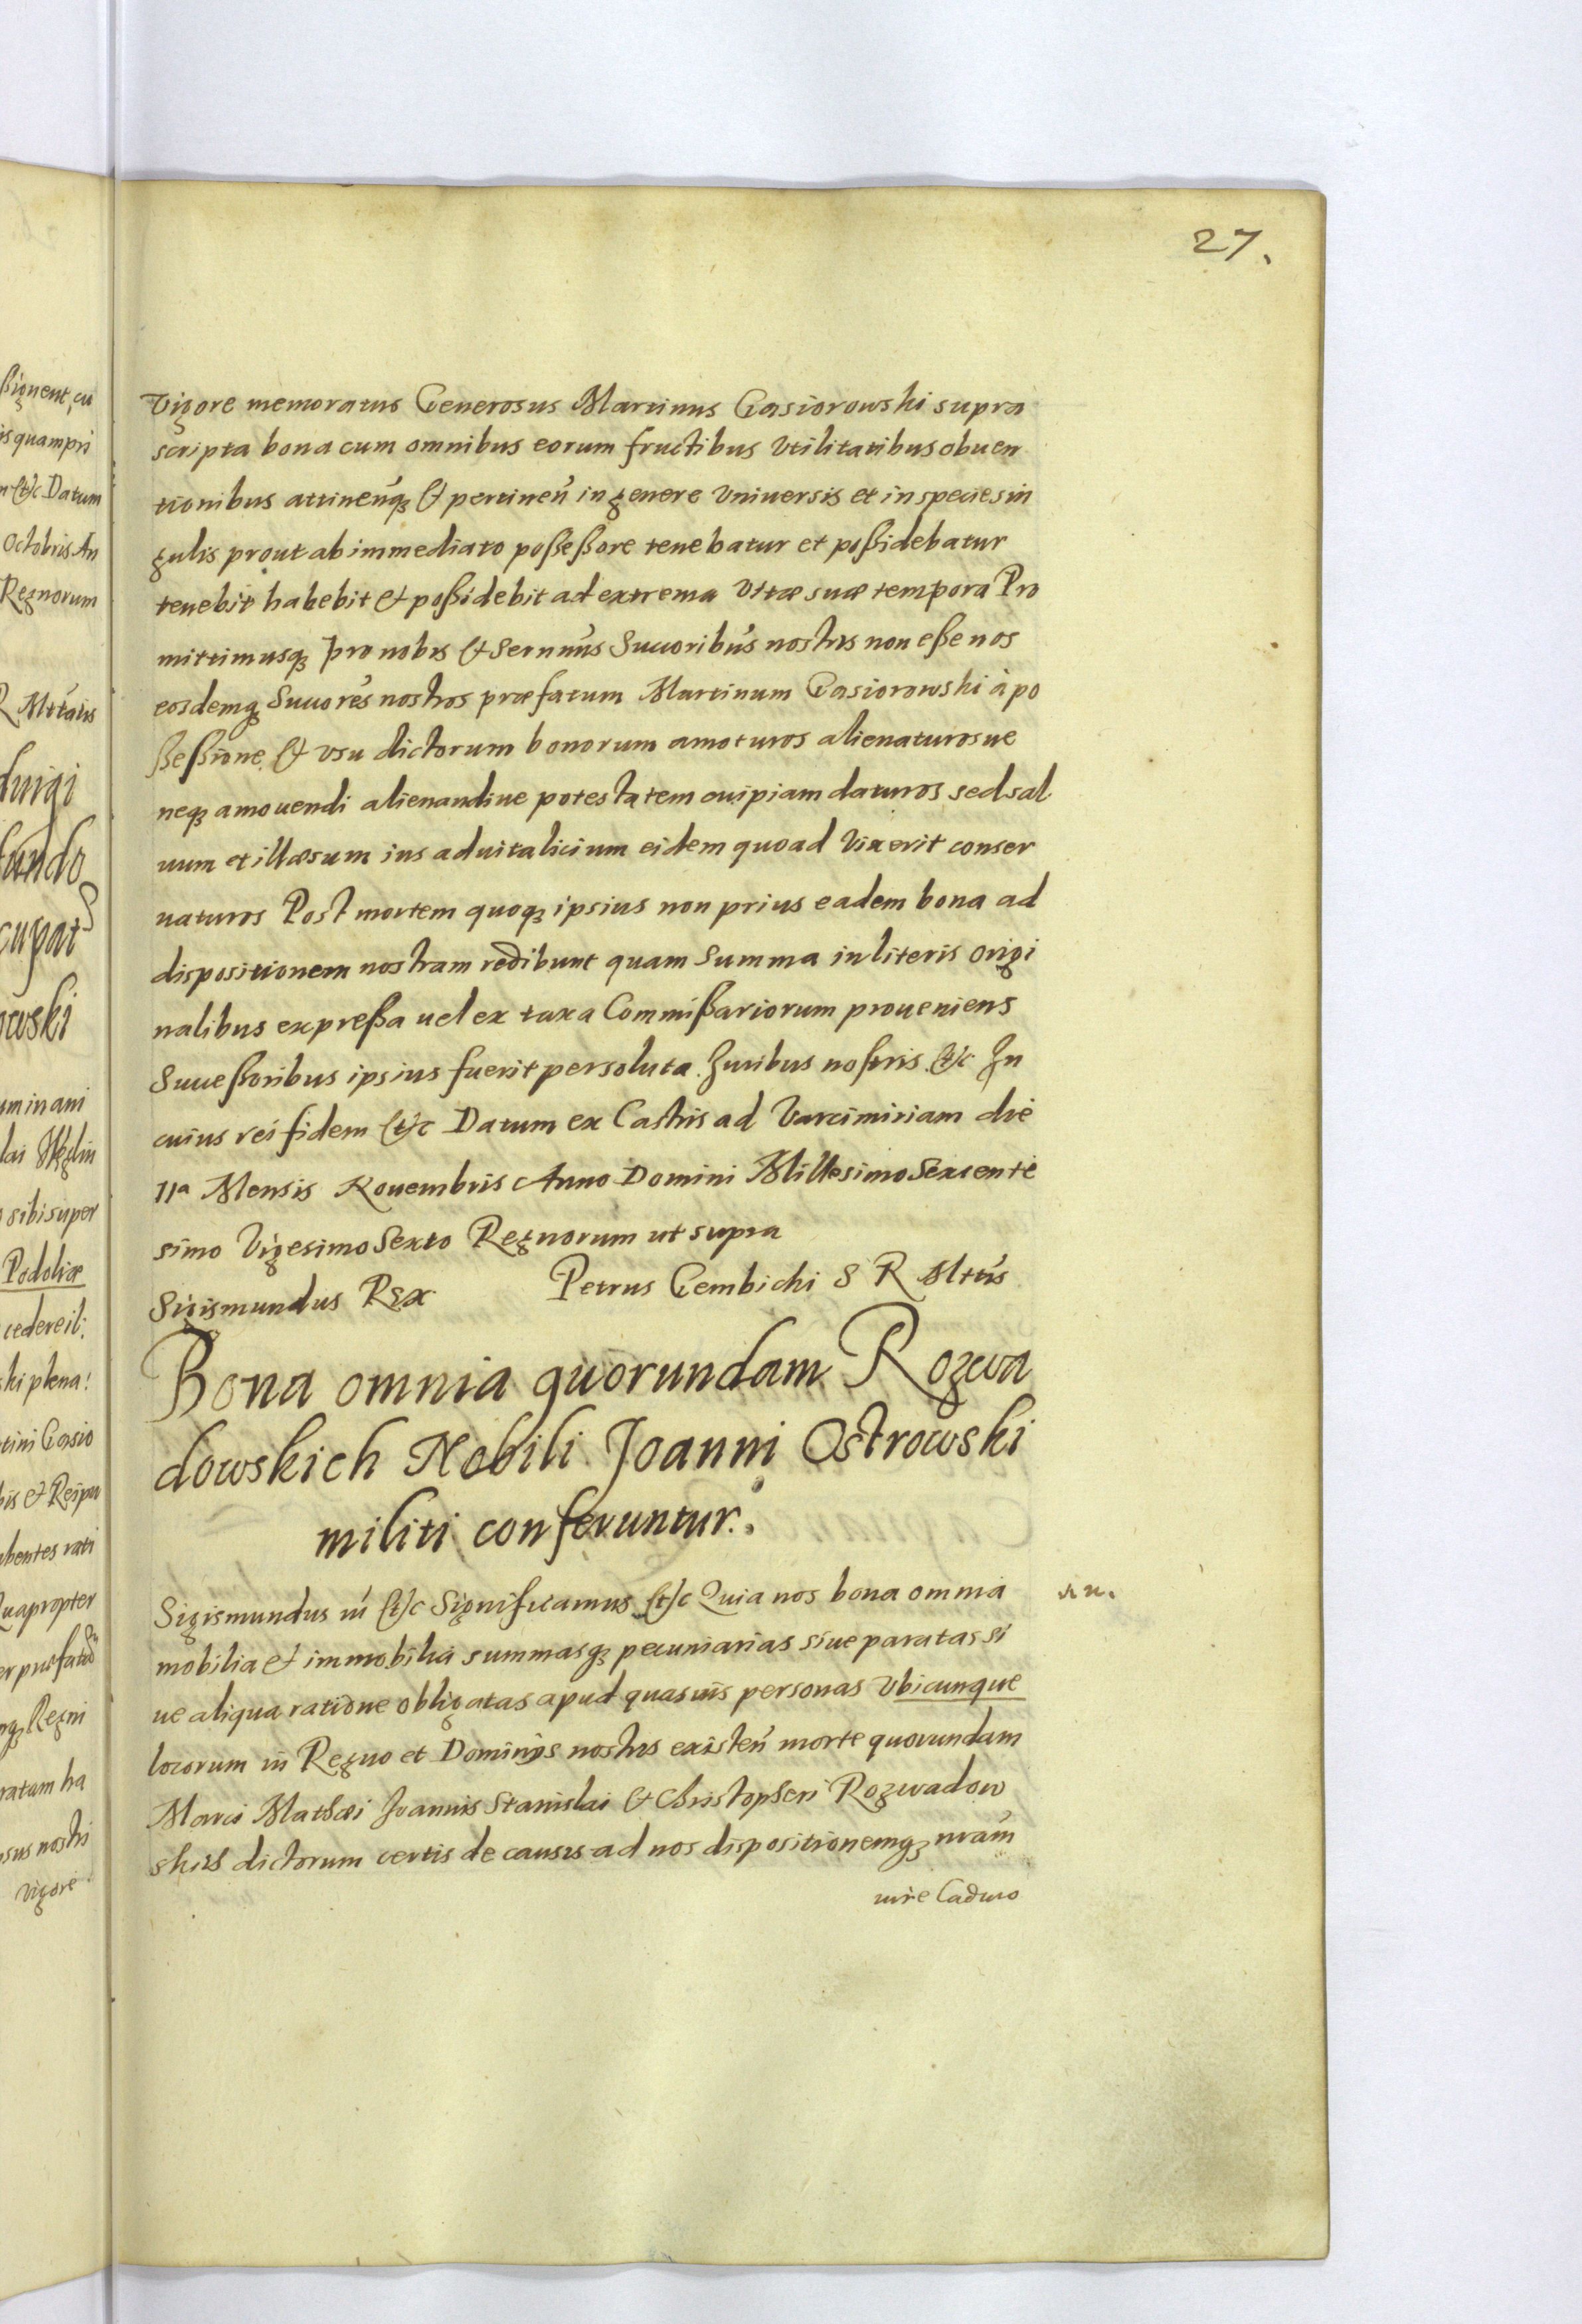 27.
Vigore memoratus Generosus Martinus Gasiorowski supra
scripta bona cum omnibus eorum fructibus Vtilitatibus obuen
tionibus attineń́q₃ & pertineń in genere Vniuersis et in specie sin
gulis prout ab immediato poßeßore tenebatur et poßidebatur
tenebit habebit & poßidebit ad extrema Vitæ suæ tempora Pro
mittimusq₃ pro nobis & Sernnús Suuoribús nostris non eße nos
eosdemq₃ Suuorés nostros præfatum Martinum Gasiorowski à po
ßeßione & vsu dictorum bonorum amoturos alienaturosue
neq₃ amouendi alienandiue potestatem cuipiam daturos sed sal
uum et illæsum ius aduitalicium eidem quoad Vixerit conser
uaturos Post mortem quoq₃ ipsius non prius eadem bona ad
dispositionem nostram redibunt quam Summa in literis origi
nalibus expreßa uel ex taxa Commißariorum proueniens
Succeßoribus ipsius fuerit persoluta. Juribus nostris &c In
cuius rei fidem &c Datum ex Castris ad Varcimiriam die
11ª Mensis Nouembris Anno Domini Millesimo Sexcente
simo Vigesimo Sexto Regnorum ut supra
Sigismundus Rex Petrus Gembicki S R Mttis
Bona omnia quorundam Rozwa
dowskich Nobili Joanni Ostrowski
militi conferuntur.
Sigismundus iii &c Significamus &c Quia nos bona omnia
mobilia & immobilia summasq₃ pecuniarias siue paratas si
ue aliqua ratione obligatas apud quasuis personas Vbicunque
locorum in Regno et Dominijs nostris existeń morte quorundam
Marci Mathæi Joannis Stanislai & Christopheri Rozwadow
skich dictorum certis de causis ad nos dispositionemq₃ nrám
iure Caduco